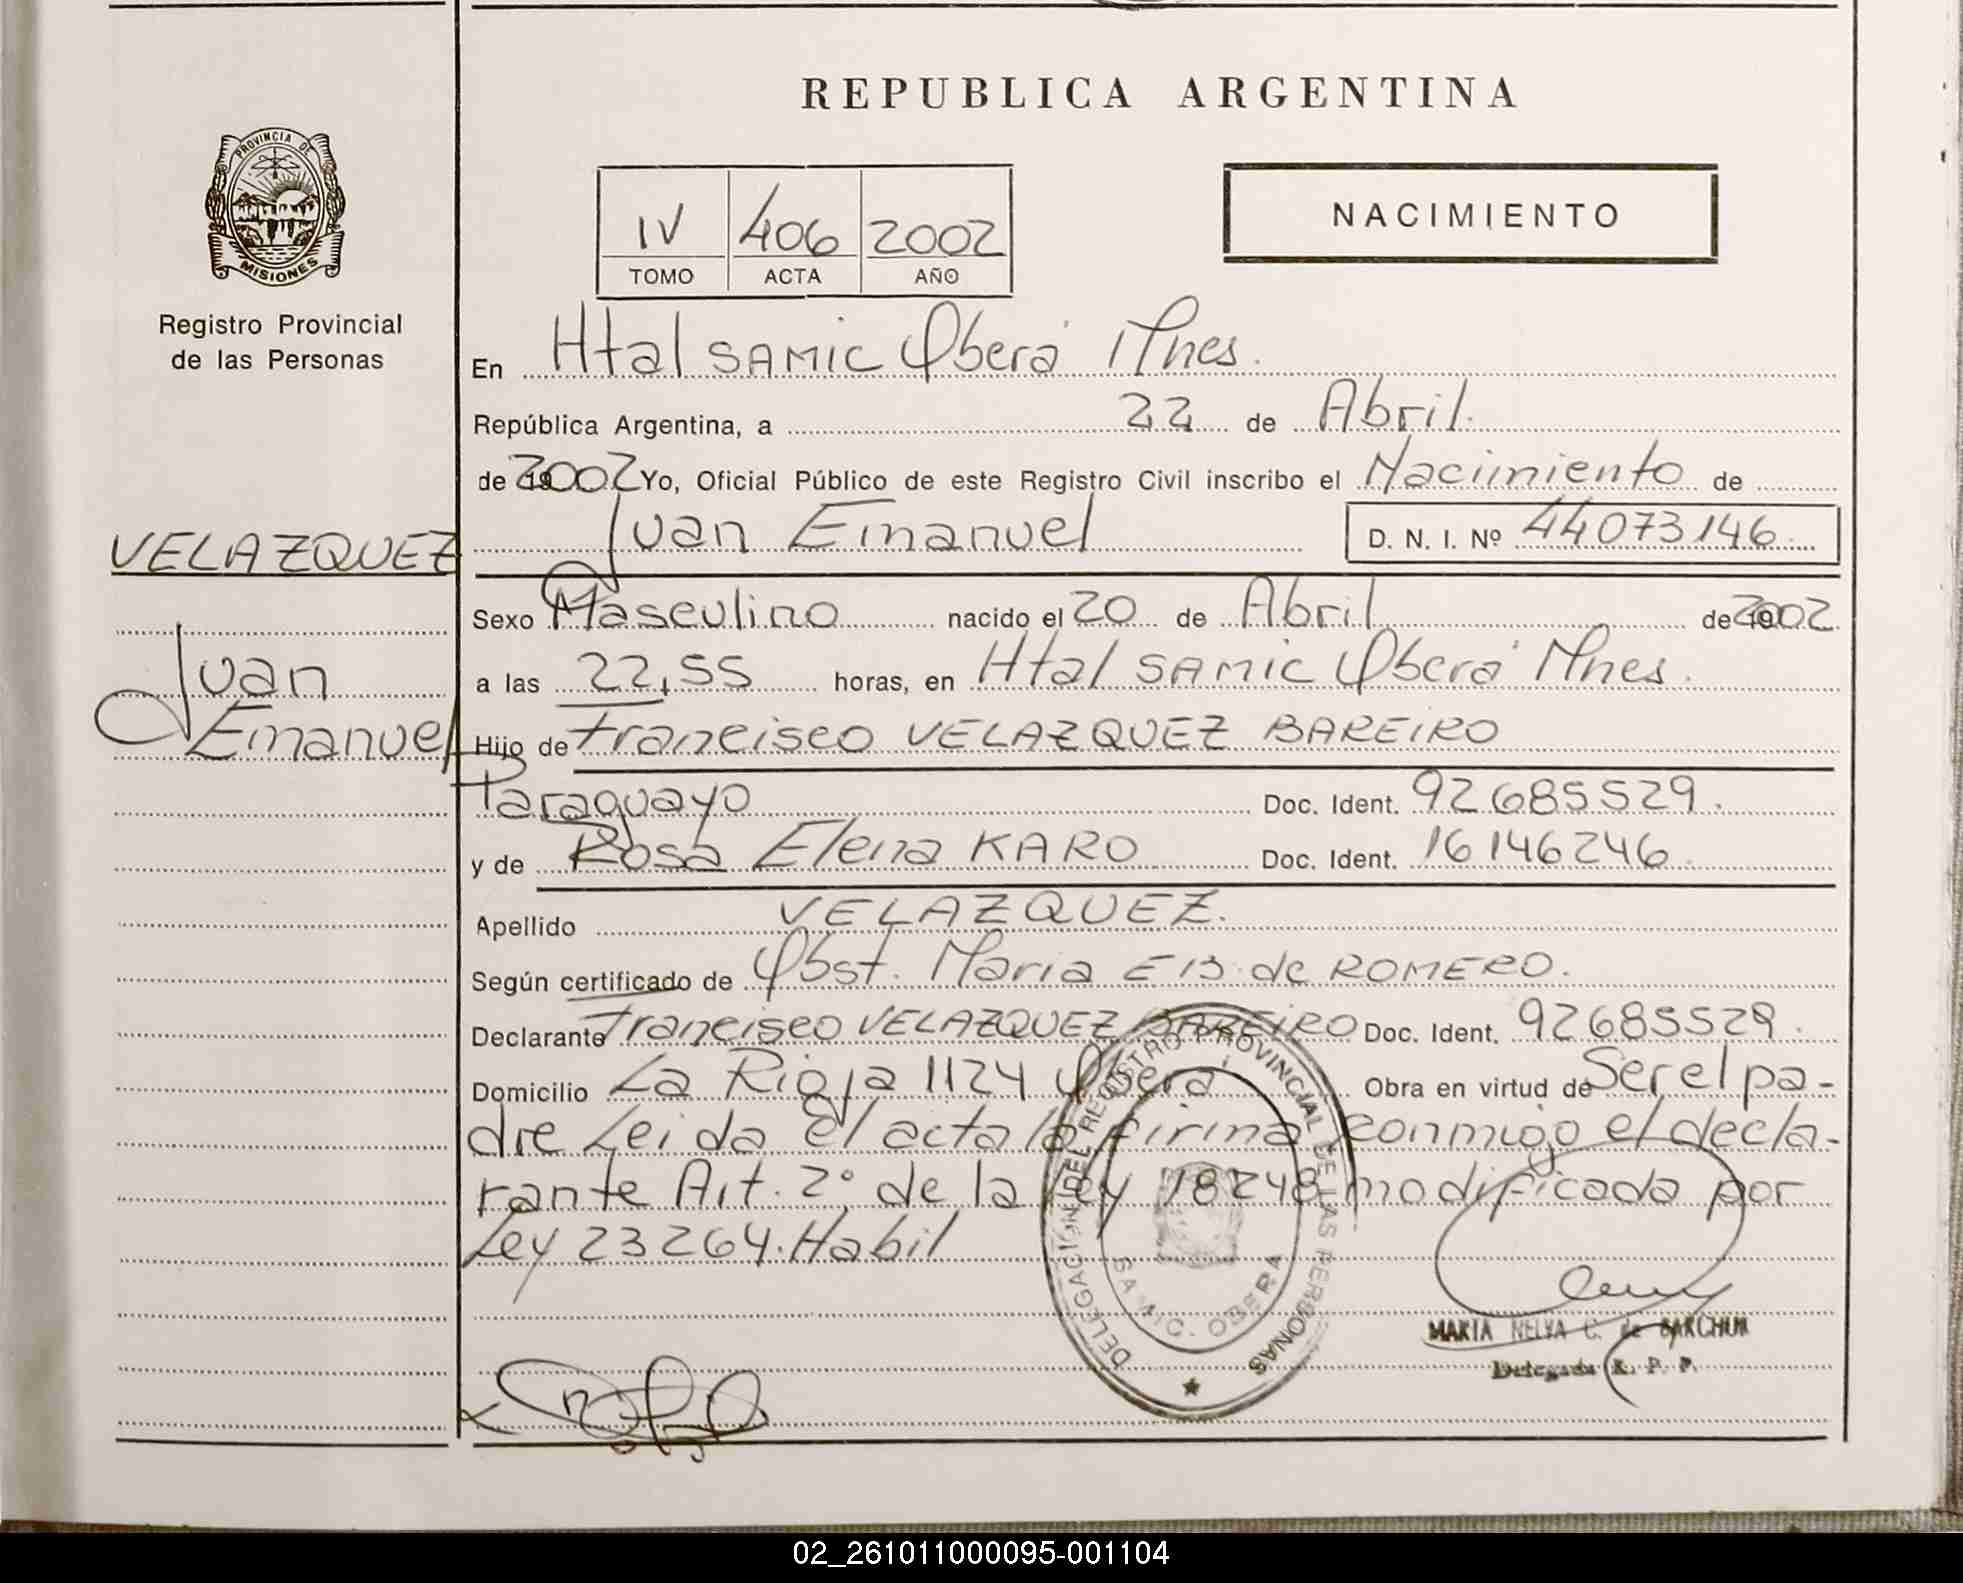 REPUBLICA ARGENTINA
PROVINCIA DE
MISIONES
Registro Provincial
de las Personas
IV 406 2002
TOMO ACTA AÑO
NACIMIENTO
En Htal SAMIC Oberá Mnes.
República Argentina, a 22 de Abril.
de 2002 Yo, Oficial Público de este Registro Civil inscribo el Nacimiento de
VELAZQUEZ
Juan Emanuel D. N. I. Nº 44073146
Sexo Masculino nacido el 20 de Abril de 2002
Juan
Emanuel
a las 22,55 horas, en Htal SAMIC Oberá Mnes.
Hijo de Francisco VELAZQUEZ BAREIRO
Paraguayo Doc. Ident. 92685529.
y de Rosa Elena KARO Doc. Ident. 16146246
Apellido VELAZQUEZ.
Según certificado de Obst. Maria E B. de ROMERO.
Declarante Francisco VELAZQUEZ BAREIRO Doc. Ident. 92685529.
Domicilio La Rioja 1124 Oberá Obra en virtud de Ser el pa-
dre Leida el acta la firma conmigo el decla-
rante Art. 2º de la Ley 18248 modificada por
Ley 23264. Habil
DELEGACION DEL REGISTRO PROVINCIAL DE LAS PERSONAS
SAMIC - OBERA
MARIA NELYA C. de
Delegada R. P. P.
02_261011000095-001104